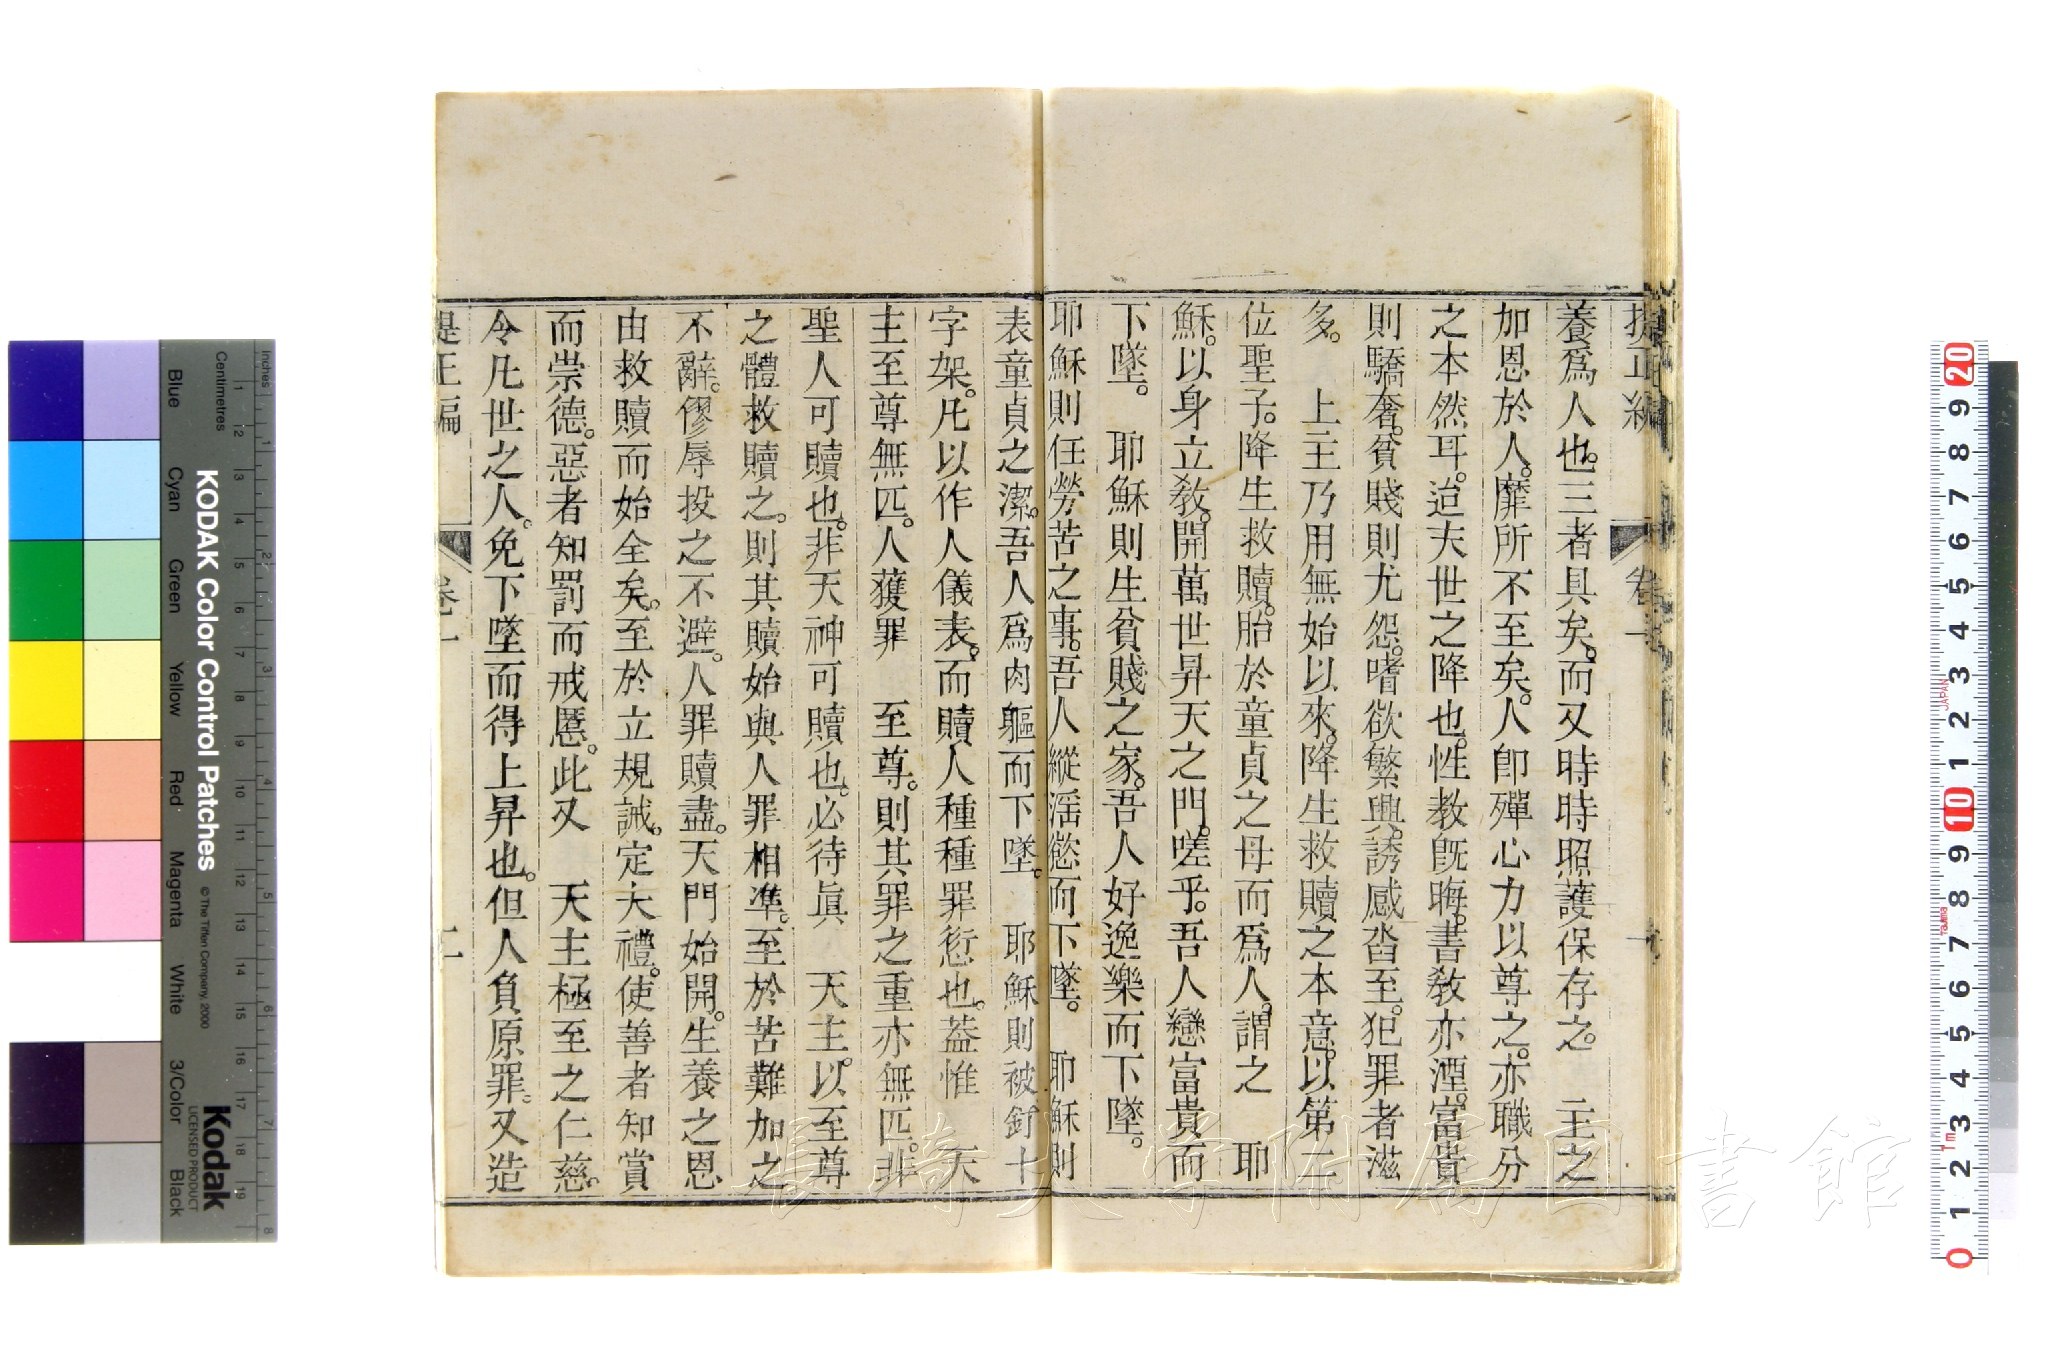 提正編 卷一
養爲人也。三者具矣。而又時時照護保存之。 主之
加恩於人。靡所不至矣。人卽殫心力以尊之。亦職分
之本然耳。迨夫世之降也。性教旣晦。書教亦湮。富貴
則驕奢。貧賤則尤怨。嗜欲繁興。誘感沓至。犯罪者滋
多。 上主乃用無始以來。降生救贖之本意。以第二
位聖子。降生救贖。胎於童貞之母而爲人。謂之 耶
穌。以身立教。開萬世昇天之門。嗟乎。吾人戀富貴而
下墜。 耶穌則生貧賤之家。吾人好逸樂而下墜。
耶穌則任勞苦之事。吾人縱淫慾而下墜。 耶穌則
表童貞之潔。吾人爲肉軀而下墜。 耶穌則被釘十
字架。凡以作人儀表。而贖人種種罪愆也。葢惟 天
主至尊無匹。人獲罪 至尊。則其罪之重亦無匹。非
聖人可贖也。非天神可贖也。必待眞 天主。以至尊
之體救贖之。則其贖始與人罪相準。至於苦難加之
不辭。僇辱投之不避。人罪贖盡。天門始開。生養之恩
由救贖而始全矣。至於立規誡。定大禮。使善者知賞
而崇德。惡者知罰而戒慝。此又 天主極至之仁慈。
令凡世之人。免下墜而得上昇也。但人負原罪。又造
提正編 卷一 二
KODAK Color Control Patches
© The Tiffen Company, 2000
Kodak
LICENSED PRODUCT
Inches
Centimetres
Blue
Cyan
Green
Yellow
Red
Magenta
White
3/Color
Black
1 2 3 4 5 6 7 8 9 10 11 12 13 14 15 16 17 18 19
1 2 3 4 5 6 7 8
20 9 8 7 6 5 4 3 2 1 10 9 8 7 6 5 4 3 2 1 0
JAPAN
1m
長崎大学附属図書館